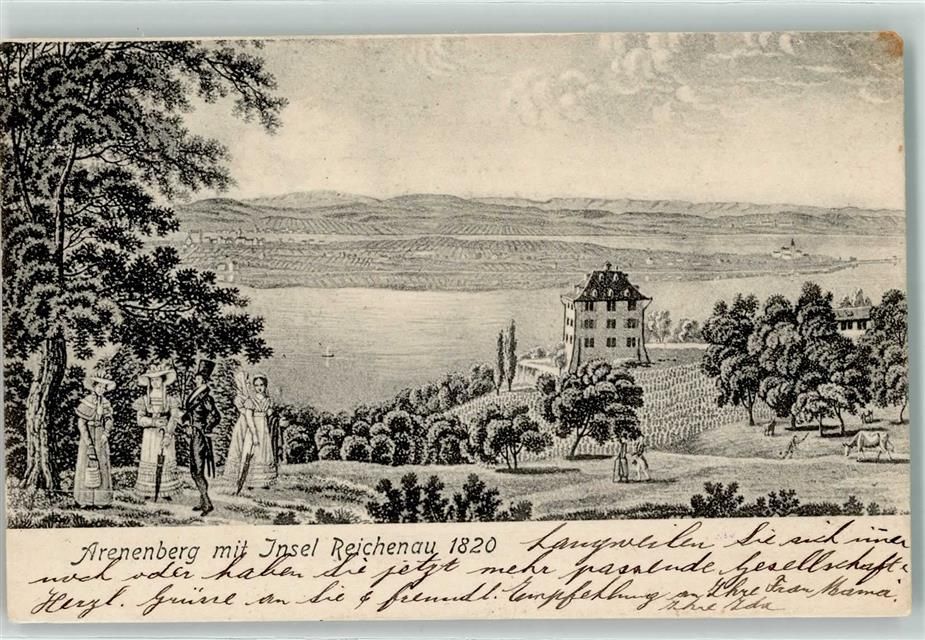 Arenenberg mit Insel Reichenau 1820
Langweilen Sie sich imer
noch oder haben Sie jetzt mehr passende Gesellschaft.
Herzl. Grüsse an Sie & freundl. Empfehlung an Ihre Frau Mama.
Ihre Eda